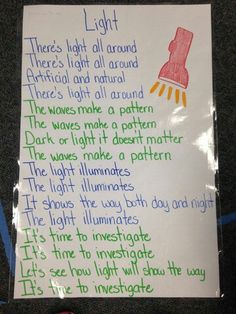 Light
There's light all around
There's light all around
Artificial and natural
There's light all around
The waves make a pattern
The waves make a pattern
Dark or light it doesn't matter
The waves make a pattern
The light illuminates
The light illuminates
It shows the way both day and night
The light illuminates
It's time to investigate
It's time to investigate
Let's see how light will show the way
It's time to investigate